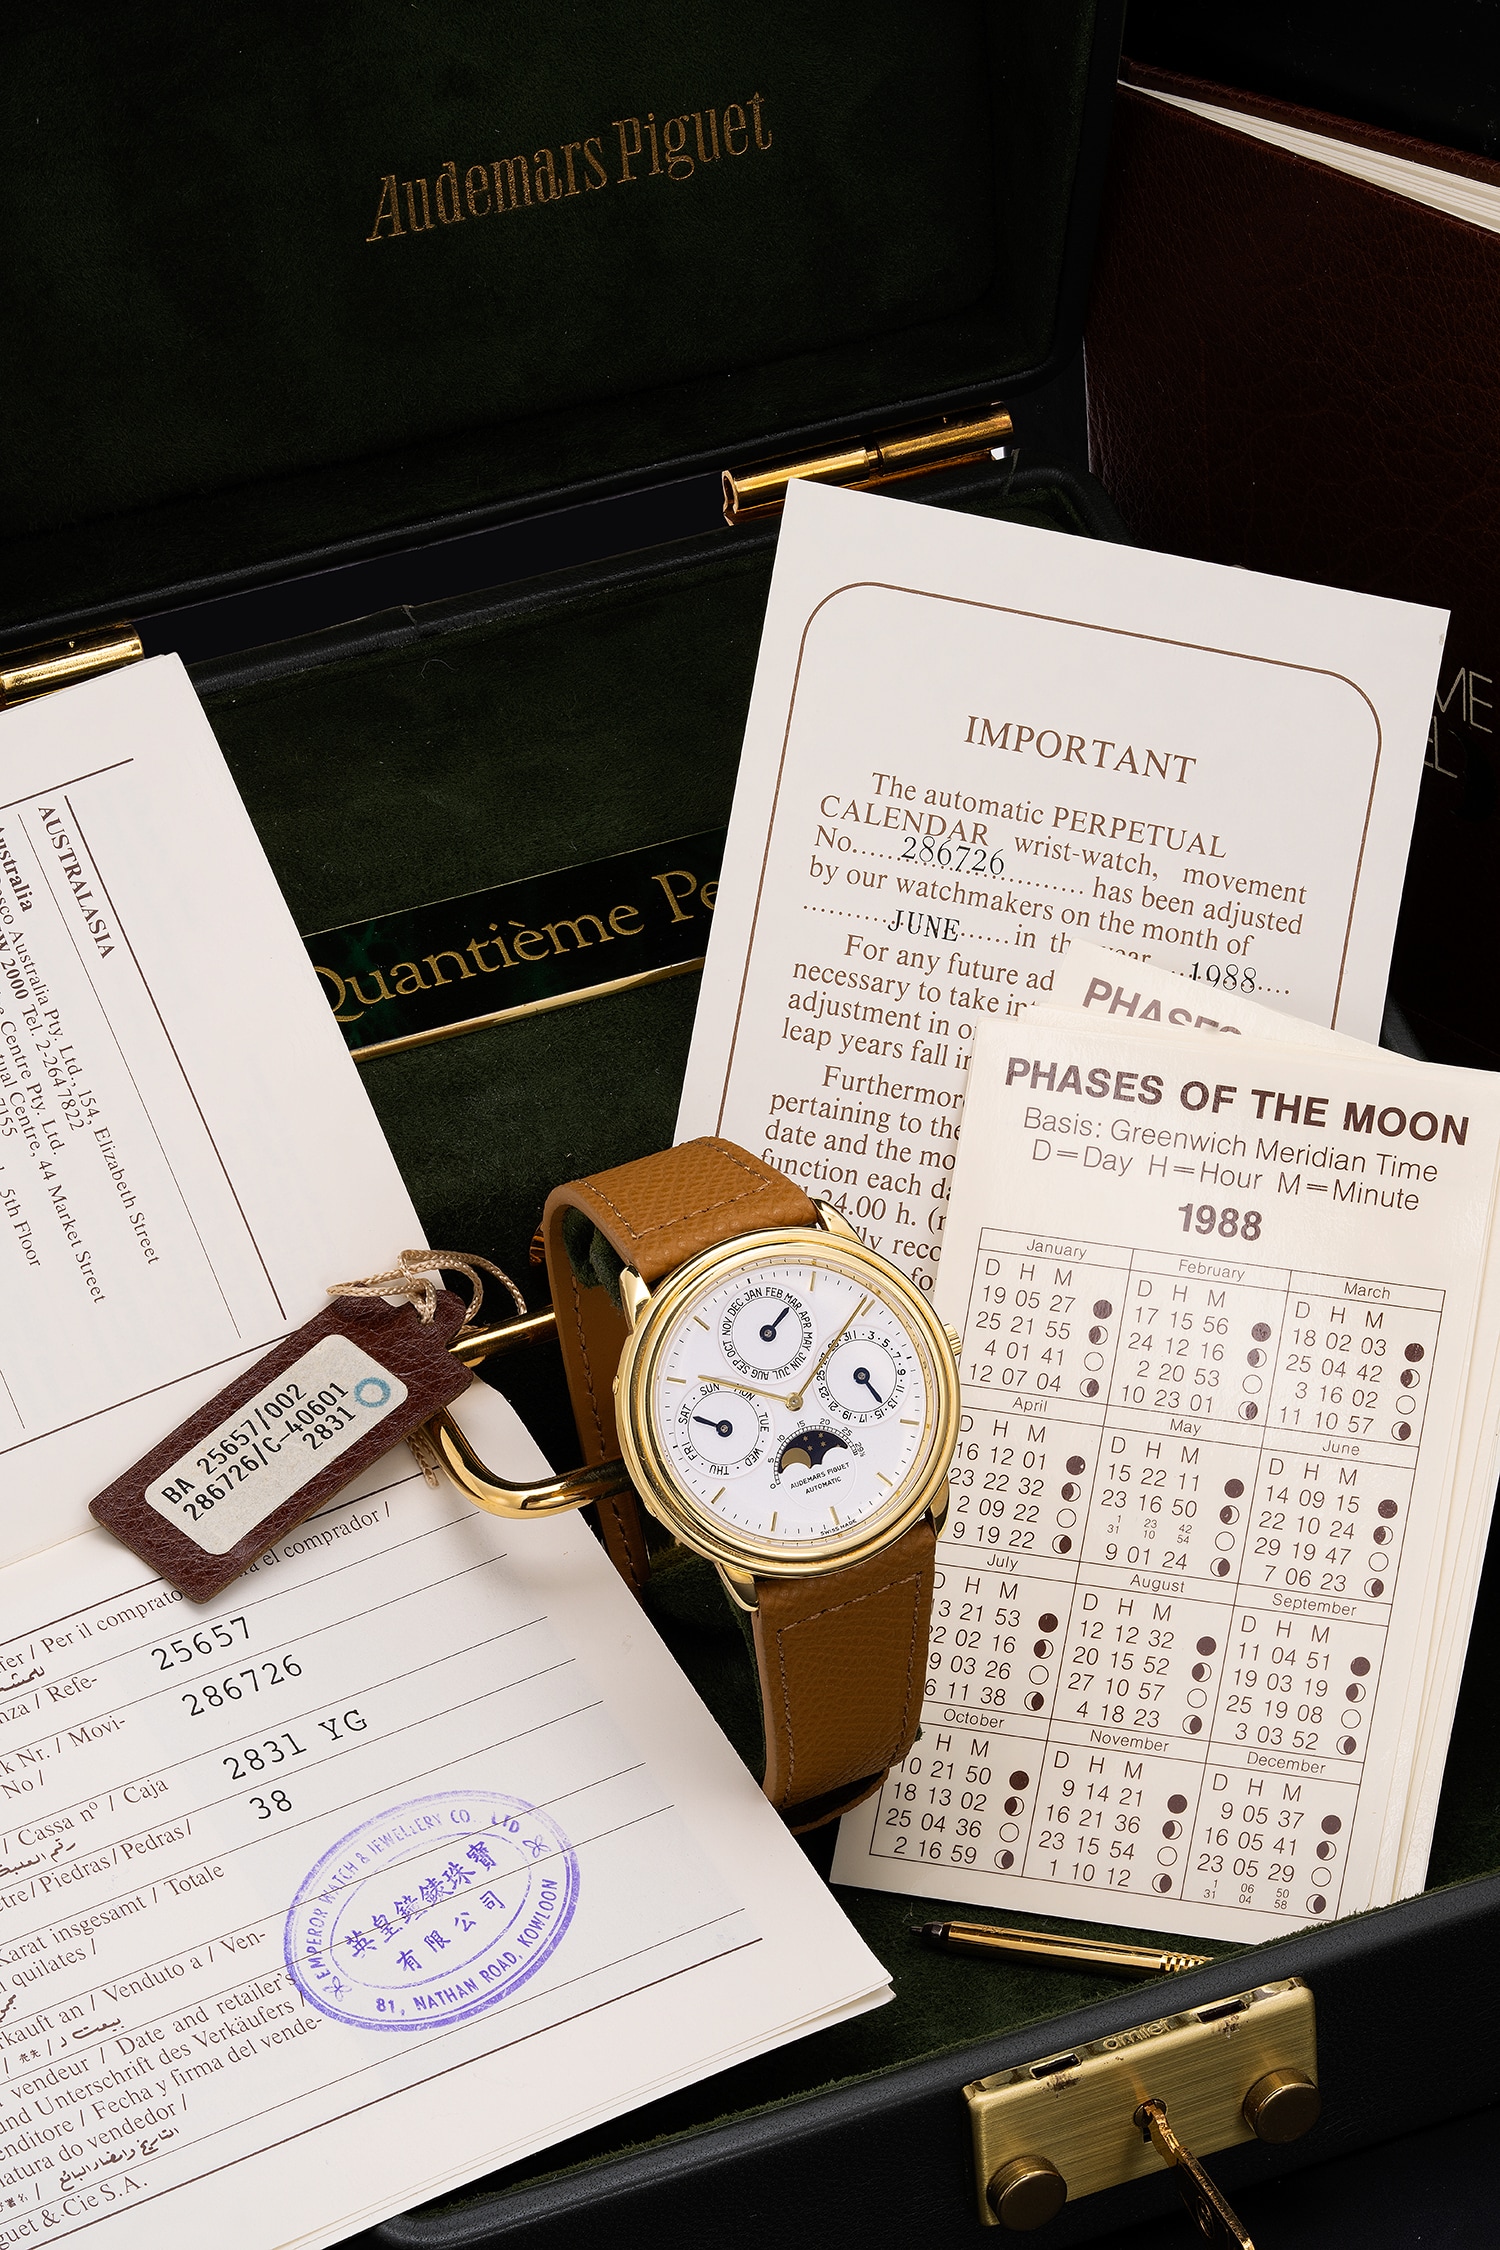 Audemars Piguet
Quantième Pe
IMPORTANT
The automatic PERPETUAL
CALENDAR wrist-watch, movement
No. 286726 has been adjusted
by our watchmakers on the month of
JUNE in the year 1988
For any future ad
necessary to take in
adjustment in o
leap years fall in
Furthermor
pertaining to the
date and the mo
function each da
24.00 h. (
lly reco
fo
PHASES
PHASES OF THE MOON
Basis: Greenwich Meridian Time
D=Day H=Hour M=Minute
1988
January February March
D H M D H M D H M
19 05 27 17 15 56 18 02 03
25 21 55 24 12 16 25 04 42
4 01 41 2 20 53 3 16 02
12 07 04 10 23 01 11 10 57
April May June
D H M D H M D H M
16 12 01 15 22 11 14 09 15
23 22 32 23 16 50 22 10 24
2 09 22 1 23 42 29 19 47
31 10 54
9 19 22 9 01 24 7 06 23
July August September
D H M D H M D H M
13 21 53 12 12 32 11 04 51
22 02 16 20 15 52 19 03 19
9 03 26 27 10 57 25 19 08
6 11 38 4 18 23 3 03 52
October November December
H M D H M D H M
10 21 50 9 14 21 9 05 37
18 13 02 16 21 36 16 05 41
25 04 36 23 15 54 23 05 29
2 16 59 1 10 12 1 06 50
31 04 58
AUSTRALASIA
Australia
Australia Pty. Ltd., 154, Elizabeth Street
2000 Tel. 2-2647822
Centre Pty. Ltd.
Centre, 44 Market Street
7155
5th Floor
BA 25657/002
286726/C-40601
2831
el comprador /
fer / Per il comprato
25657
nza / Refe-
286726
k Nr. / Movi-
No /
2831 YG
/ Cassa nº / Caja
38
tre / Piedras / Pedras /
Karat insgesamt / Totale
quilates /
rkauft an / Venduto a / Ven-
vendeur / Date and retailer's
und Unterschrift des Verkäufers /
enditore / Fecha y firma del vende-
natura do vendedor /
guet & Cie S.A.
EMPEROR WATCH & JEWELLERY CO. LTD
英皇鐘錶珠寶
有限公司
81, NATHAN ROAD, KOWLOON
JAN FEB MAR APR MAY JUN JUL AUG SEP OCT NOV DEC
SUN MON TUE WED THU FRI SAT
31 1 3 5 7 9 11 13 15 17 19 21 23 25
5 10 15 20 25
AUDEMARS PIGUET
AUTOMATIC
SWISS MADE
amiet
ME